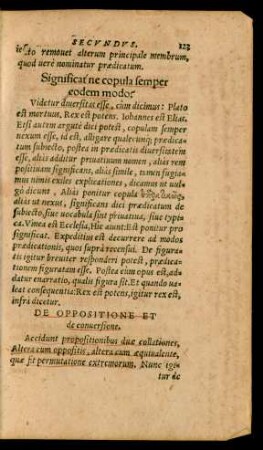 SECVNDVS. 123
iecto remouet alterum principale membrum,
quod uerè nominatur prædicatum.
Significat'ne copula semper
eodem modo?
Videtur diuersitas esse, cùm dicimus: Plato
est mortuus, Rex est potens. Iohannes est Elias.
Etsi autem argutè dici potest, copulam semper
nexum esse, id est, alligare qualecunq; prædica-
tum subiecto, postea in prædicatis diuersitatem
esse, aliâs additur priuatiuum nomen, aliâs rem
positiuam significans, aliâs simile, tamen fugia-
mus nimis exiles explicationes, dicamus ut uul-
gò dicunt. Aliâs ponitur copula
aliâs ut nexus, significans dici prædicatum de
subiecto, siue uocabula sint priuatiua, siue typi-
ca. Vinea est Ecclesia, Hic aunt: Est ponitur pro
significat. Expeditius est decurrere ad modos
prædicationis, quos suprà recensui. De figura-
tis igitur breuiter responderi potest, prædicati-
onem figuratam esse. Postea cùm opus est, ad-
datur enarratio, qualis figura sit. Et quando ua-
leat consequentia: Rex est potens, igitur rex est,
infrà dicetur.
DE OPPOSITIONE ET
de conuersione.
Accidunt propositionibus duæ collationes,
Altera cum oppositis, altera cum æquiualente,
quæ fit permutatione extremorum. Nunc igi-
tur de